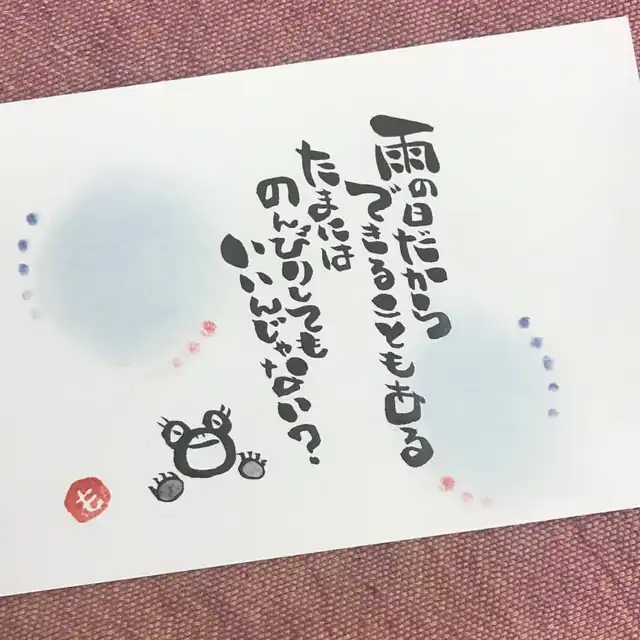 雨の日だから
できることもある
たまには
のんびりしても
いいんじゃない?
も